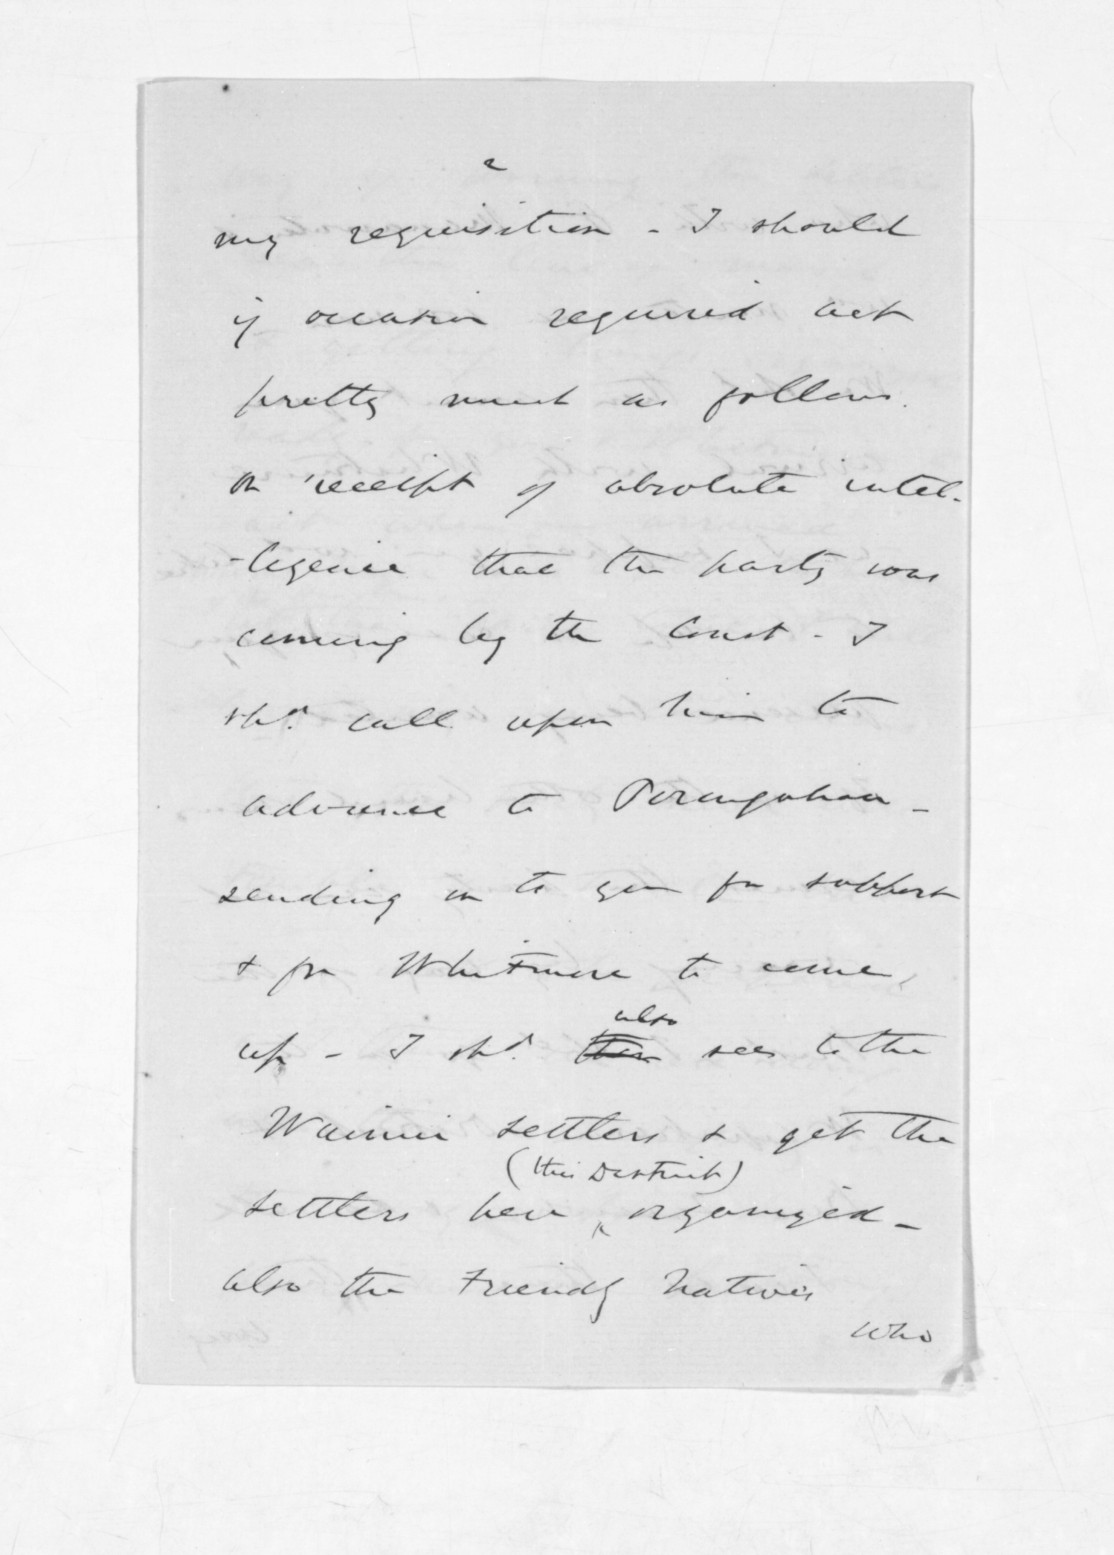 2
my requisition - I should
if occasion required act
pretty much as follows.
on receipt of absolute intel-
-ligence that the party was
coming by the Coast - I
shd. call upon him to
advance to Porangahau -
sending on to you for support
& for Whitmore to come
up - I shd. then see to the
also
Wainui settlers & get the
(this District)
settlers here organized -
also the Friendly Natives
who